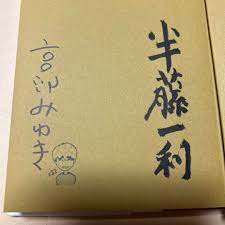 半藤一利
宮部みゆき